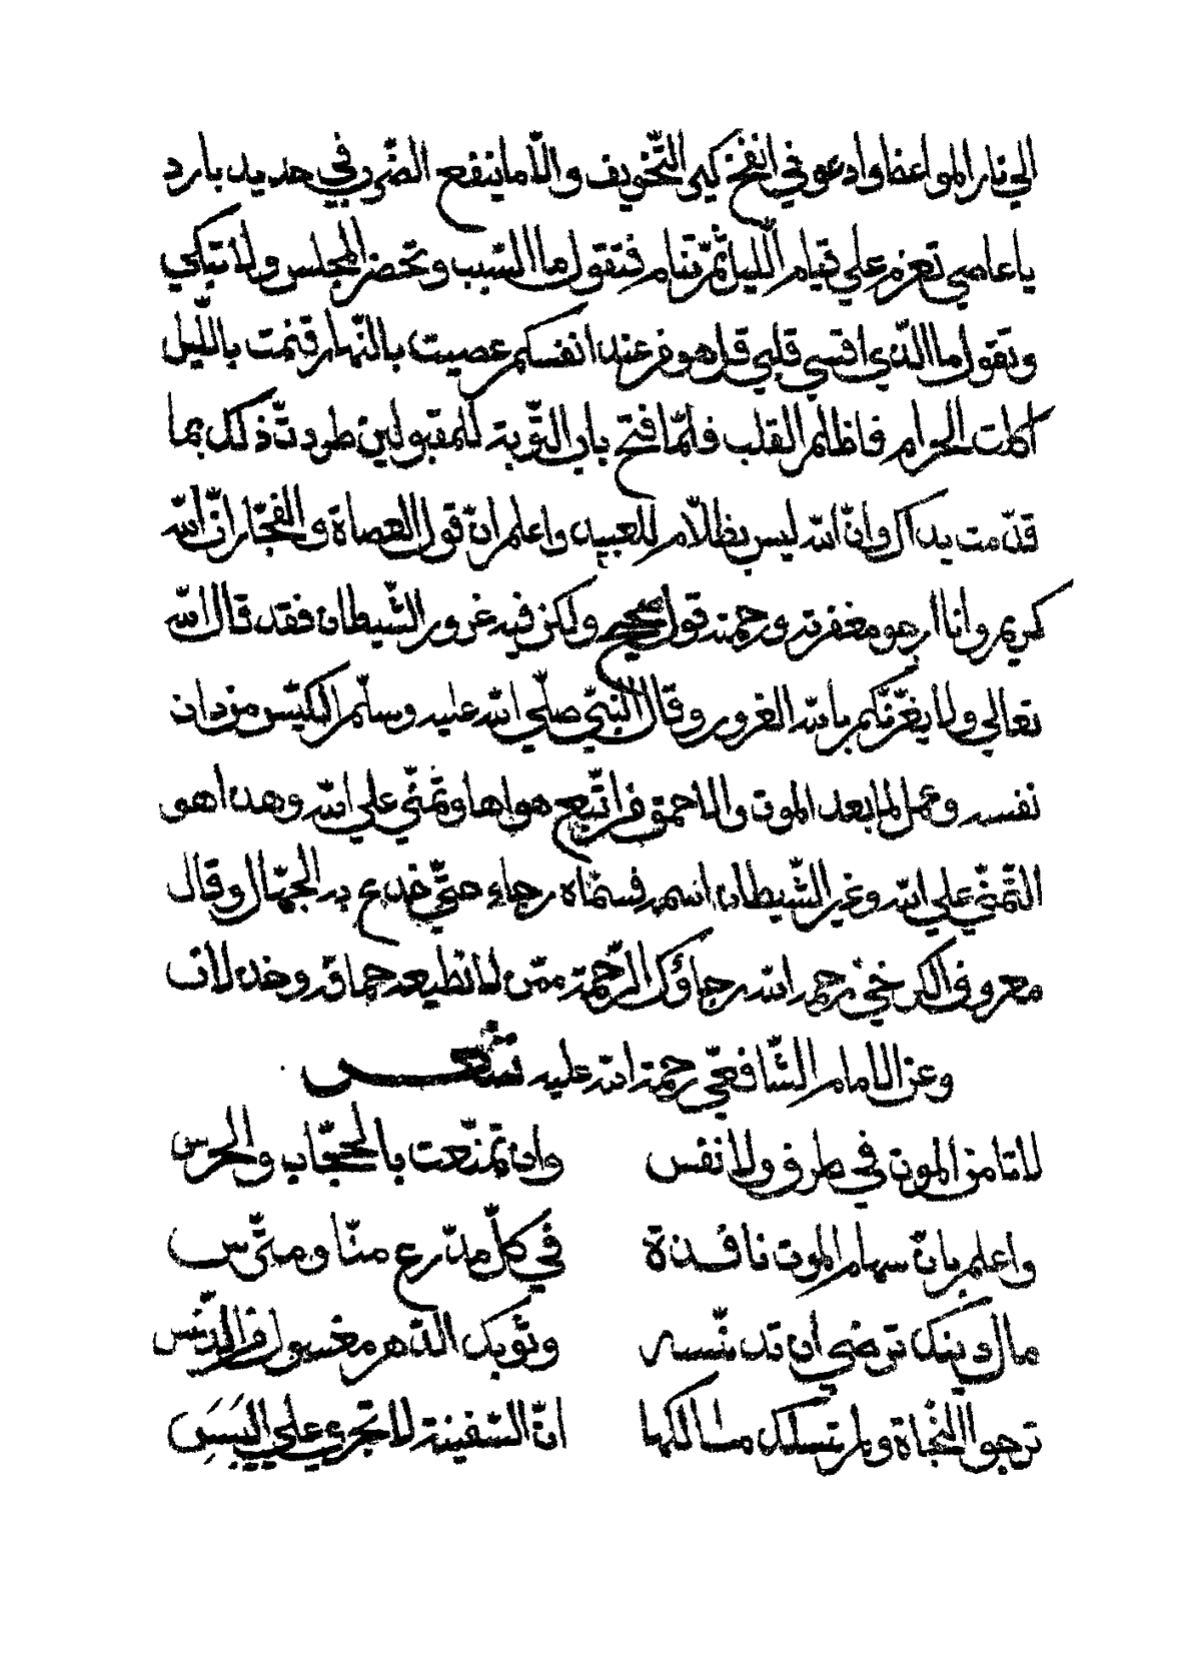 الي نار المواعظ وادعو في انفخ كير التّخويف والّا ما ينفع الضّرب في حديد بارد
يا عاصي تعزم علي قيام اللّيل ثمّ تنام فتقول ما السّبب وتحضر المجلس ولا تبكي
وتقول ما الّذي اقسي قلبي قل هو من عند انفسكم عصيت بالنّهار فنمت باللّيل
اكلت الحرام فاظلم القلب فلمّا فتح باب التّوبة للمقبولين طردت ذلك بما
قدّمت يداك وانّ الله ليس بظلّام للعبيد واعلم انّ قول العصاة والفجّار انّ الله
كريم وانا ارجو مغفرته ورحمته قول صحيح ولكن فيه غرور الشّيطان فقد قال الله
تعالي ولا يغرّنّكم بالله الغرور وقال النّبيّ صلّي الله عليه وسلّم الكيّس من دان
نفسه وعمل لما بعد الموت والاحمق من اتّبع هواها وتمنّي علي الله وهذا هو
التّمنّي علي الله وغير الشّيطان اسمه فسمّاه رجاء حتّي خدع به الجهّال وقال
معروف الكرخي رحمه الله رجاؤك الرّحمة ممّن لا تطيعه حماقة وخذلان
وعن الامام الشّافعيّ رحمة الله عليه شعر
لا تامن الموت في طرف ولا نفس وان تمنّعت بالحجّاب والحرس
واعلم بانّ سهام الموت نافذة في كلّ مدّرع منّا ومترّس
ما بال دينك ترضي ان تدنّسه وثوبك الدّهر مغسول من الدّنس
ترجوا النّجاة ولم تسلك مسالكها انّ السّفينة لا تجري علي اليَبَسِ